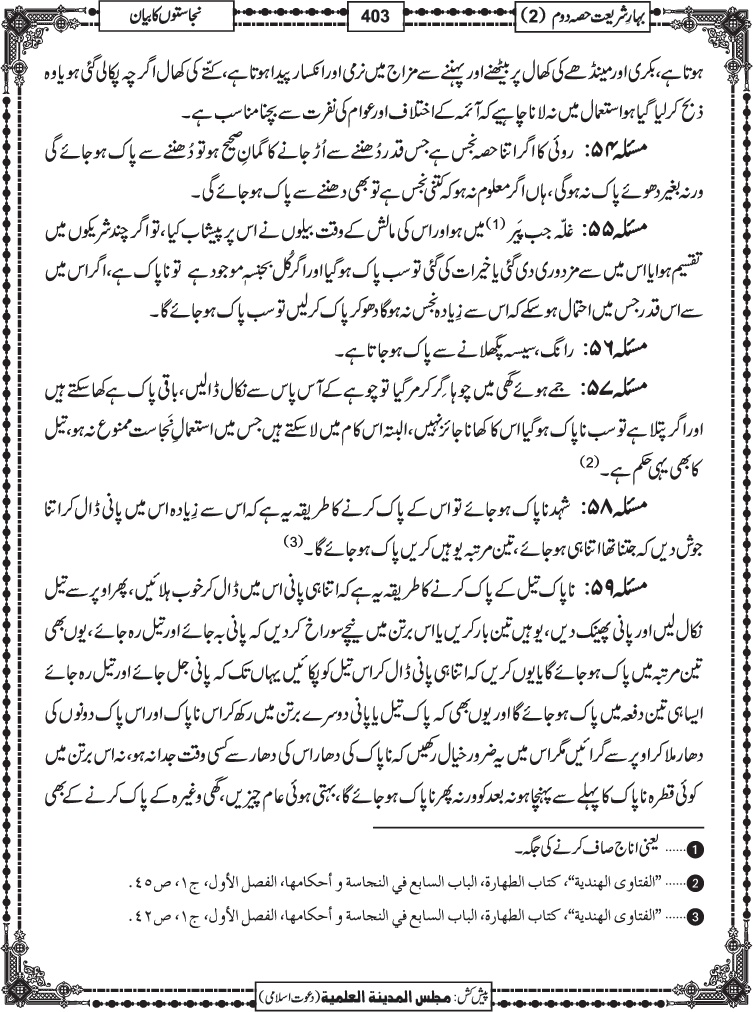 بہارِشریعت حصہ دوم (2)
403
نجاستوں کا بیان
ہوتا ہے، بکری اور مینڈھے کی کھال پر بیٹھنے اور پہننے سے مزاج میں نرمی اور انکسار پیدا ہوتا ہے، کتّے کی کھال اگرچہ پکالی گئی ہو یا وہ
ذبح کر لیا گیا ہو استعمال میں نہ لانا چاہیے کہ آئمہ کے اختلاف اور عوام کی نفرت سے بچنا مناسب ہے۔
مسئلہ ۵۴: روئی کا اگر اتنا حصہ نجس ہے جس قدر دُھننے سے اُڑ جانے کا گمانِ صحیح ہو تو دُھننے سے پاک ہو جائے گی
ورنہ بغیر دھوئے پاک نہ ہوگی، ہاں اگر معلوم نہ ہو کہ کتنی نجس ہے تو بھی دھننے سے پاک ہو جائے گی۔
مسئلہ ۵۵: غلّہ جب پَیر (1) میں ہو اور اس کی مالش کے وقت بیلوں نے اس پر پیشاب کیا، تو اگر چند شریکوں میں
تقسیم ہوا یا اس میں سے مزدوری دی گئی یا خیرات کی گئی تو سب پاک ہو گیا اور اگر کُل بجنسہٖ موجود ہے تو ناپاک ہے، اگر اس میں
سے اس قدر جس میں احتمال ہو سکے کہ اس سے زِیادہ نجس نہ ہوگا دھو کر پاک کر لیں تو سب پاک ہو جائے گا۔
مسئلہ ۵۶: رانگ، سیسہ پگھلانے سے پاک ہو جاتا ہے۔
مسئلہ ۵۷: جمے ہوئے گھی میں چوہا گِر کر مر گیا تو چوہے کے آس پاس سے نکال ڈالیں، باقی پاک ہے کھا سکتے ہیں
اور اگر پتلا ہے تو سب ناپاک ہو گیا اس کا کھانا جائز نہیں، البتہ اس کام میں لا سکتے ہیں جس میں استعمالِ نَجاست ممنوع نہ ہو، تیل
کا بھی یہی حکم ہے۔ (2)
مسئلہ ۵۸: شہد ناپاک ہو جائے تو اس کے پاک کرنے کا طریقہ یہ ہے کہ اس سے زِیادہ اس میں پانی ڈال کر اتنا
جوش دیں کہ جتنا تھا اتنا ہی ہو جائے، تین مرتبہ یوہیں کریں پاک ہو جائے گا۔ (3)
مسئلہ ۵۹: ناپاک تیل کے پاک کرنے کا طریقہ یہ ہے کہ اتنا ہی پانی اس میں ڈال کر خوب ہلائیں، پھر اوپر سے تیل
نکال لیں اور پانی پھینک دیں، یوہیں تین بار کریں یا اس برتن میں نیچے سوراخ کر دیں کہ پانی بہ جائے اور تیل رہ جائے، یوں بھی
تین مرتبہ میں پاک ہو جائے گا یا یوں کریں کہ اتنا ہی پانی ڈال کر اس تیل کو پکائیں یہاں تک کہ پانی جل جائے اور تیل رہ جائے
ایسا ہی تین دفعہ میں پاک ہو جائے گا اور یوں بھی کہ پاک تیل یا پانی دوسرے برتن میں رکھ کر اس ناپاک اور اس پاک دونوں کی
دھار ملا کر اوپر سے گرائیں مگر اس میں یہ ضرور خیال رکھیں کہ ناپاک کی دھار اس کی دھار سے کسی وقت جدا نہ ہو، نہ اس برتن میں
کوئی قطرہ ناپاک کا پہلے سے پہنچا ہو نہ بعد کو ورنہ پھر ناپاک ہو جائے گا، بہتی ہوئی عام چیزیں، گھی وغیرہ کے پاک کرنے کے بھی
1 ...... یعنی اناج صاف کرنے کی جگہ۔
2 ...... ”الفتاوی الهندیة“، کتاب الطهارة، الباب السابع في النجاسة و أحکامها، الفصل الأول، ج١، ص٤٥.
3 ...... ”الفتاوی الهندیة“، کتاب الطهارة، الباب السابع في النجاسة و أحکامها، الفصل الأول، ج١، ص٤٢.
پیش کش: مجلس المدینة العلمیة (دعوت اسلامی)